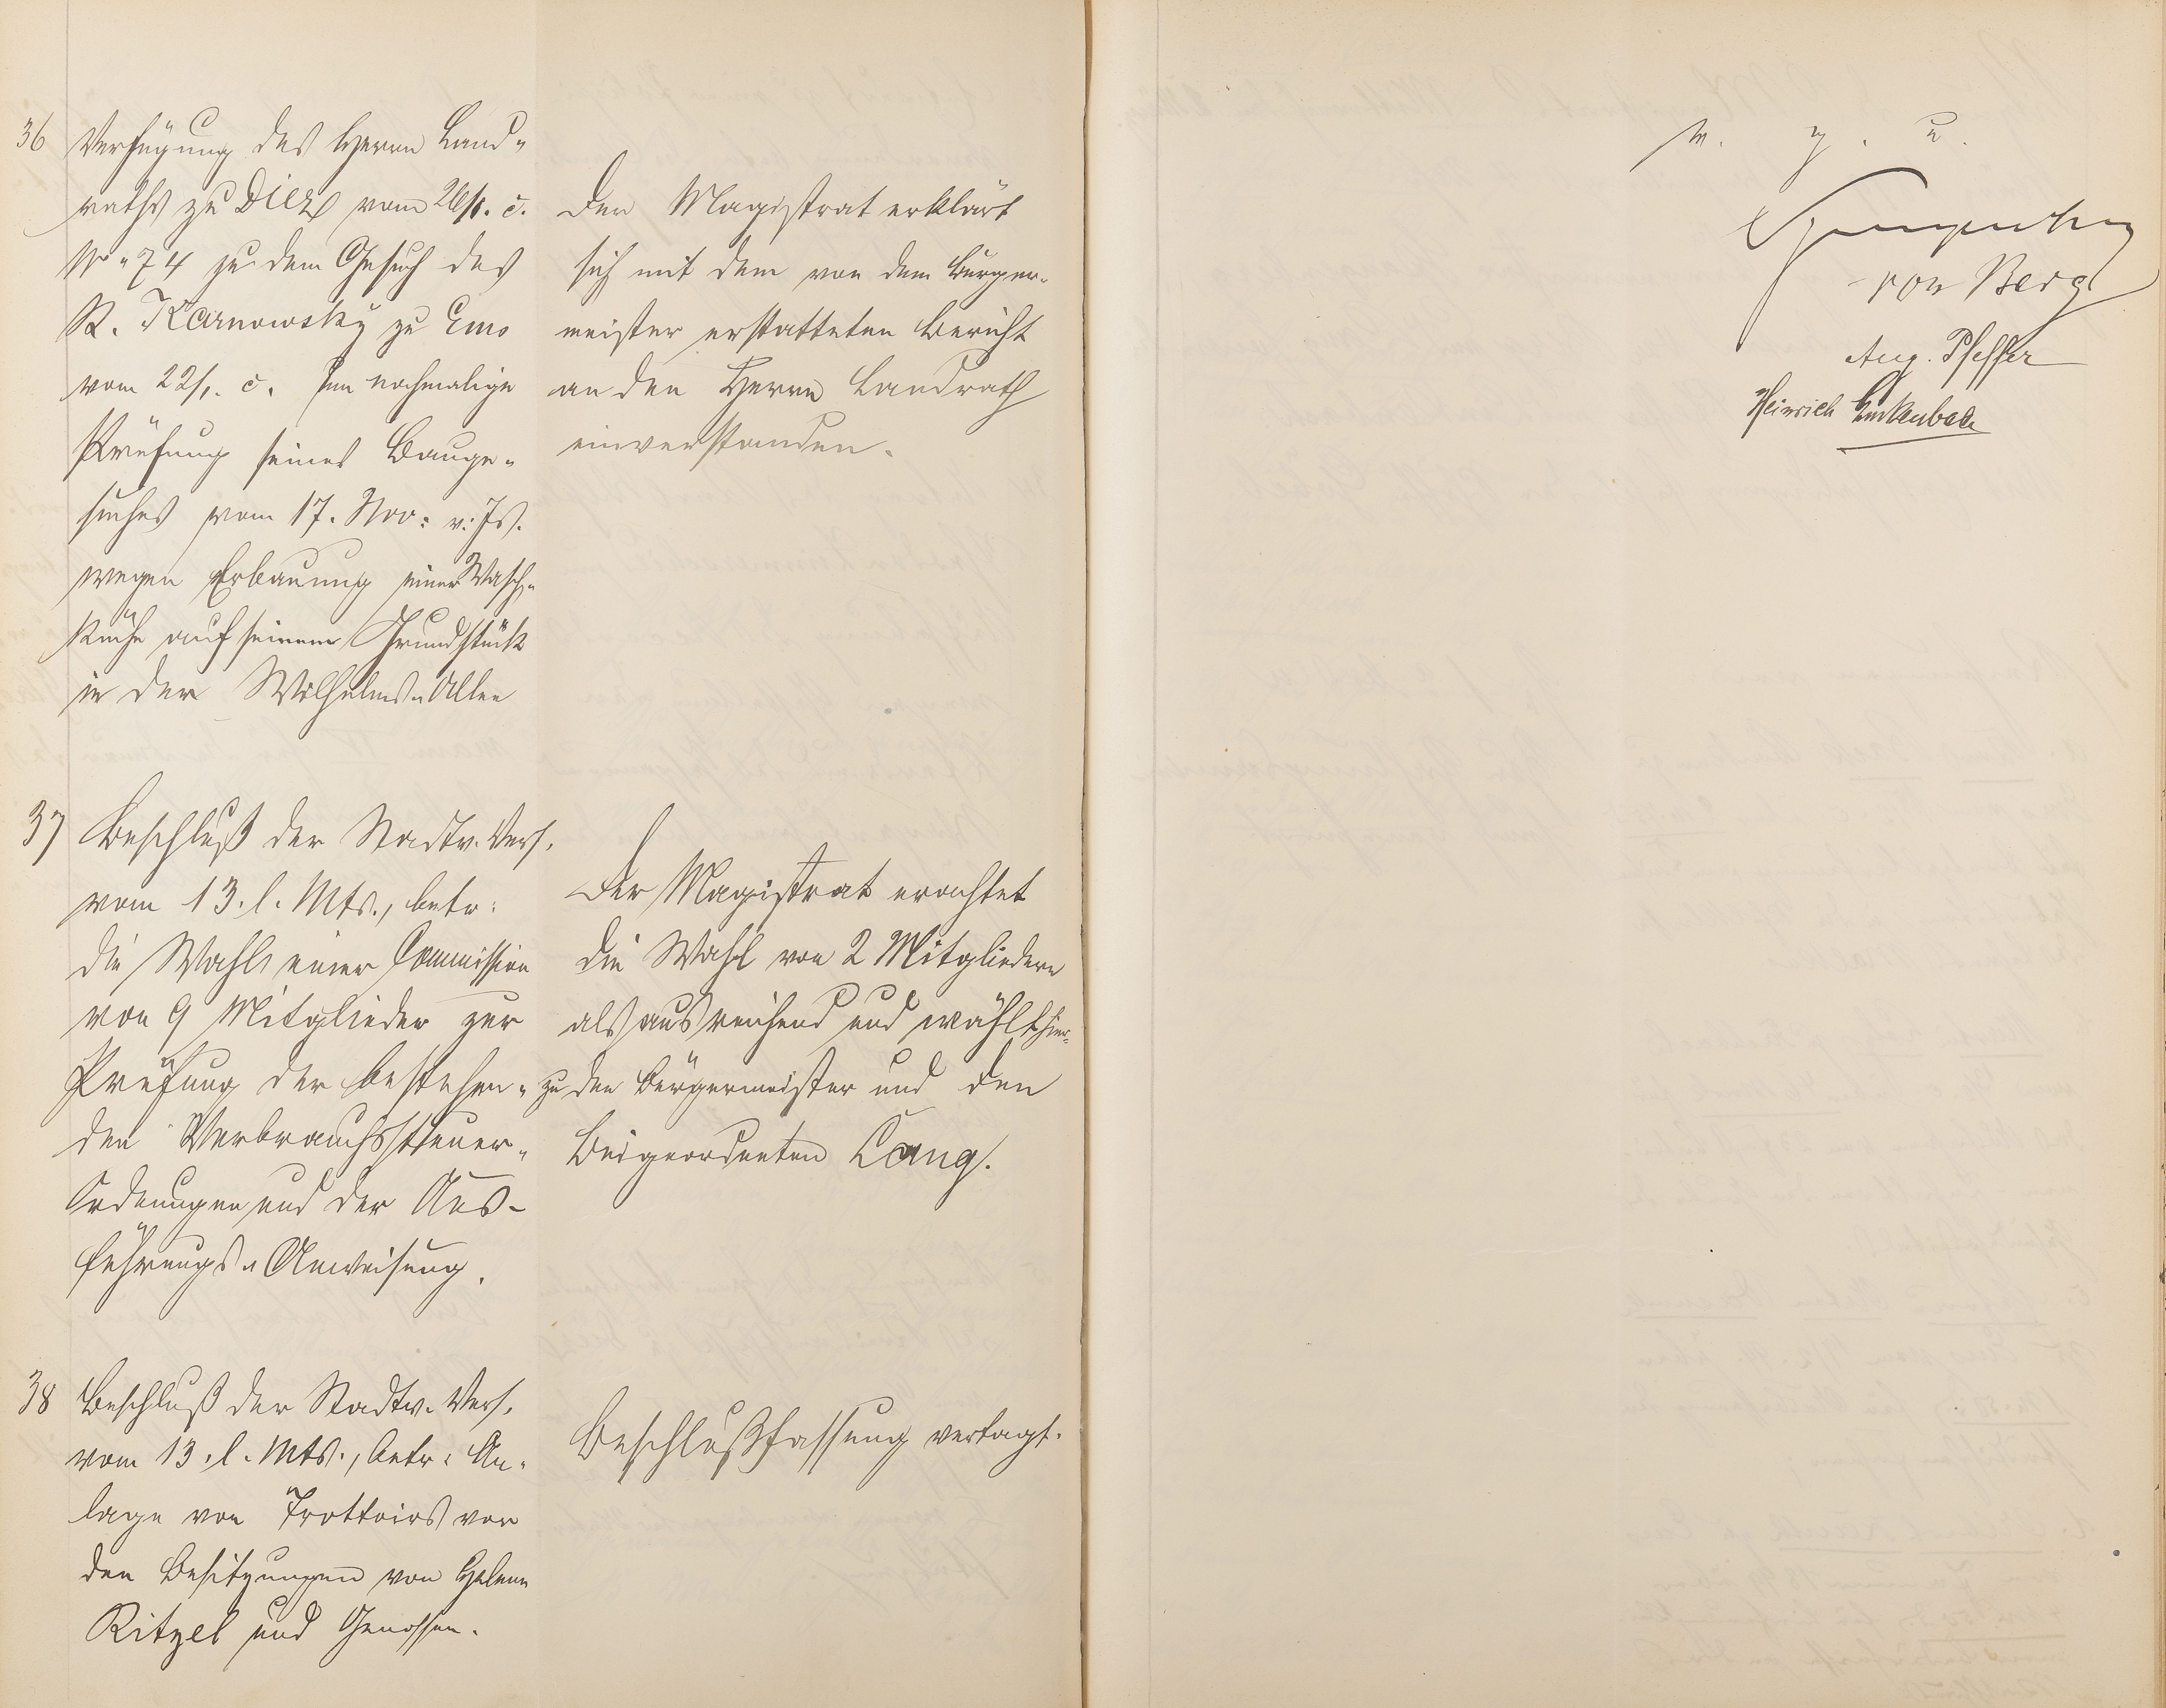 36 Verfügung des Herrn Land-
raths zu Diez vom 26/1. c.
No 74 zu dem Gesuch des
R. Karnowsky zu Ems
vom 22/1. c. um nochmalige
Prüfung seines Bauge-
suches vom 17. Nov: v: Js.
wegen Erbauung einer Wasch-
küche auf seinem Grundstück
in der Wilhelms-Allee
Der Magistrat erklärt
sich mit dem von dem Bürger-
meister erstatteten Bericht
an den Herrn Landrath
einverstanden.
37 Beschluß der Stadtv. Vers.
vom 13. l. Mts., betr:
die Wahl einer Commission
von 9 Mitglieder zur
Prüfung der bestehen-
den Verbrauchssteuer-
Ordnungen und der Aus-
führungs-Anweisung.
Der Magistrat erachtet
die Wahl von 2 Mitgliedern
als ausreichend und wählt hier-
zu den Bürgermeister und den
Beigeordneten Lang.
38 Beschluß der Stadtv. Vers.
vom 13. l. Mts., betr: An-
lage von Trottoirs vor
den Besitzungen von Helene
Ritzel und Genossen.
Beschlußfassung vertagt.
v. g. u.
von Berg
Aug. Pfeffer
Heinrich Linkenbach